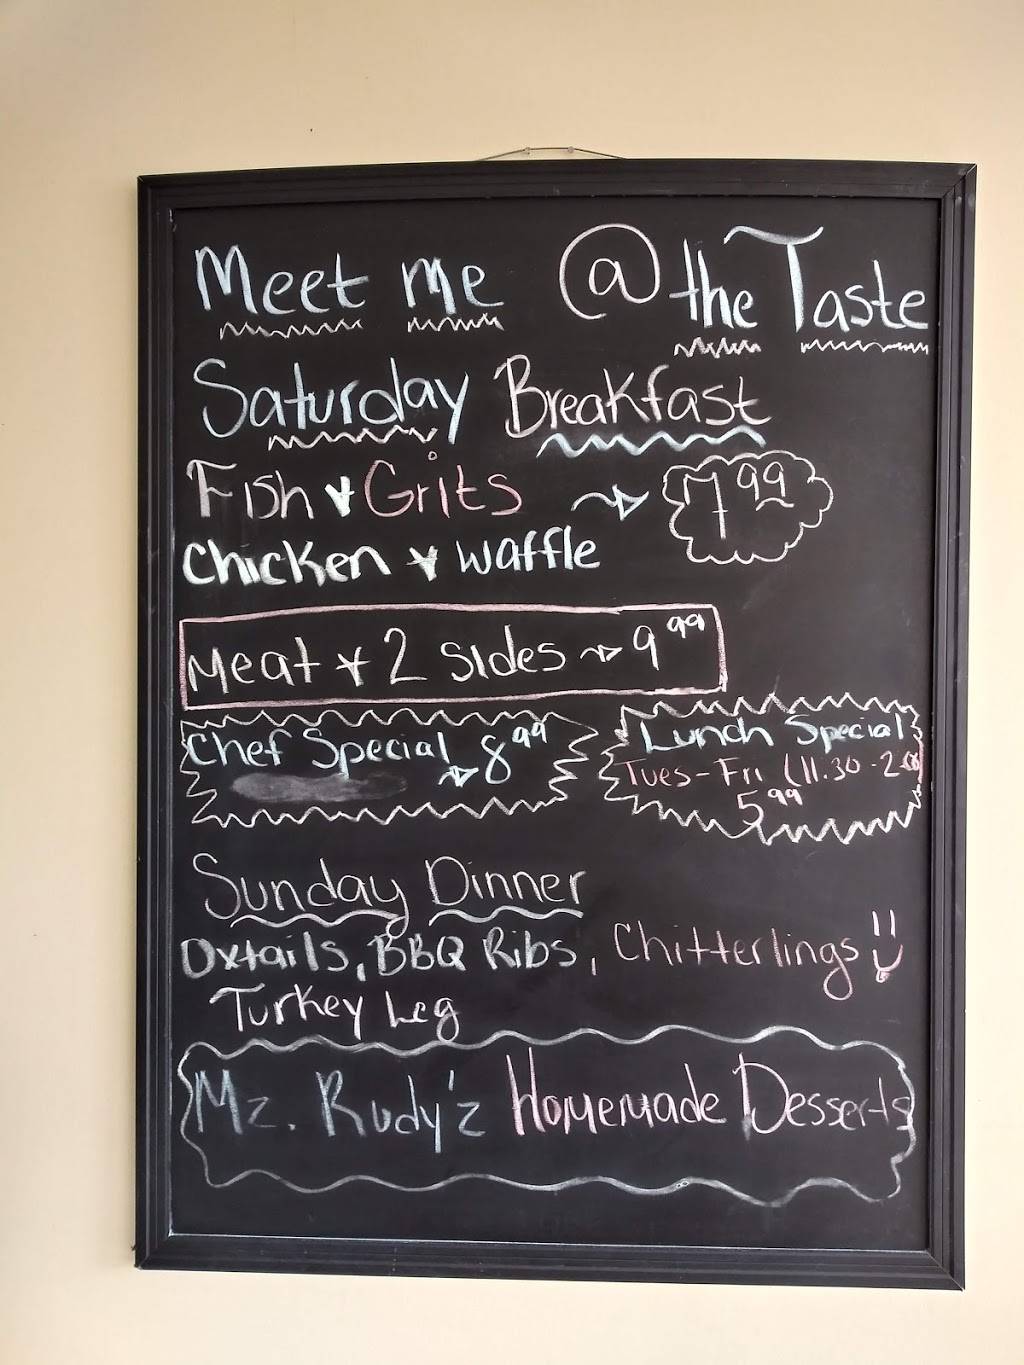 Meet me @ the Taste
Saturday Breakfast
Fish & Grits 7.99
Chicken & Waffle
Meat & 2 Sides 9.99
Chef Special 8.99
Lunch Special
Tues-Fri (11.30-2.00
5.99
Sunday Dinner
Oxtails, BBQ Ribs, Chitterlings
Turkey Leg
Mz. Rudy'z Homemade Desserts